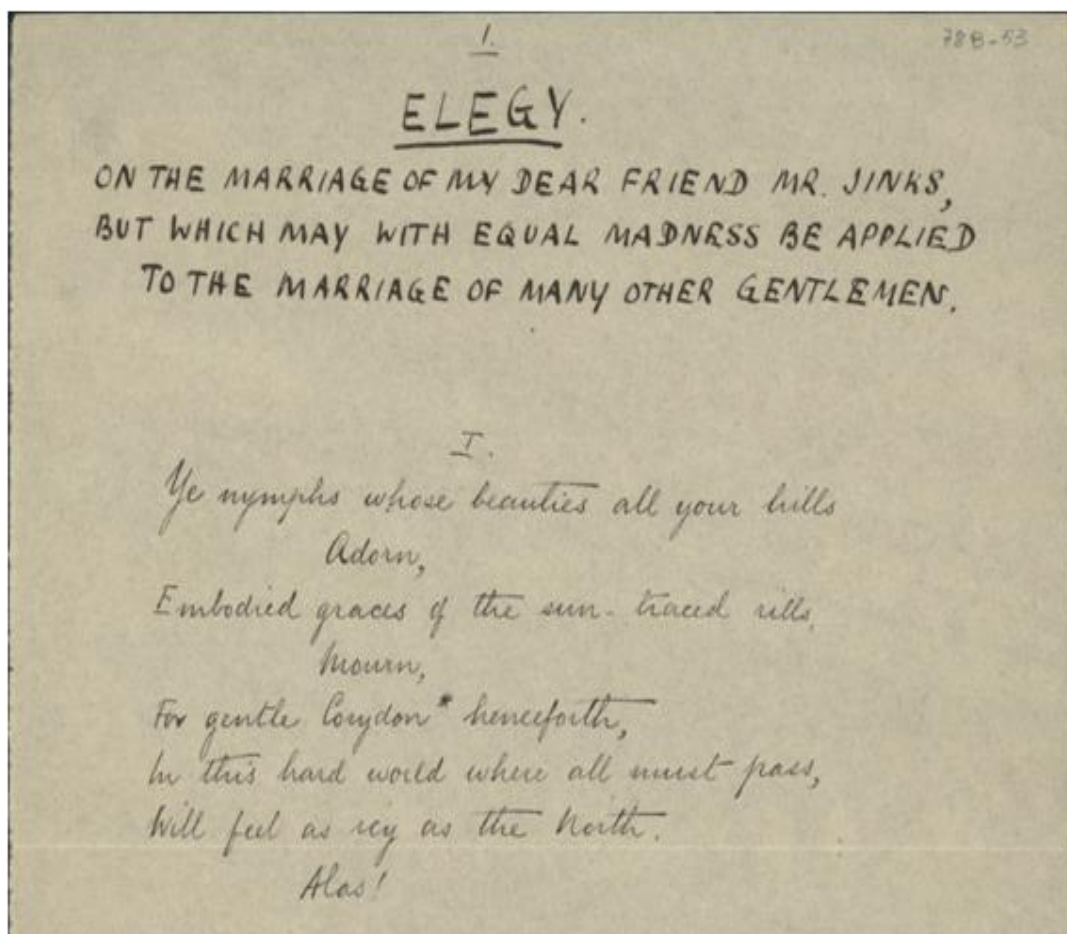 1.
78B-53
ELEGY.
ON THE MARRIAGE OF MY DEAR FRIEND MR. JINKS,
BUT WHICH MAY WITH EQUAL MADNESS BE APPLIED
TO THE MARRIAGE OF MANY OTHER GENTLEMEN.
I.
Ye nymphs whose beauties all your hills
Adorn,
Embodied graces of the sun-traced rills,
Mourn,
For gentle Corydon* henceforth,
In this hard world where all must pass,
Will feel as icy as the North.
Alas!